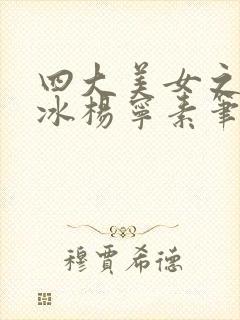 四大美女之
冰杨宁素笔
穆贾希德